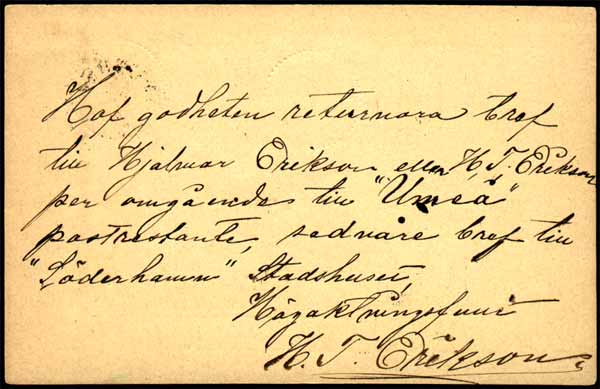 Haf godheten returnera bref
till Hjalmar Erikson eller H. T. Erikson
per omgående till "Umeå"
postrestante, sedvåre bref till
"Söderhamn" Stadshuset,
Högaktningsfullt
H. T. Erikson